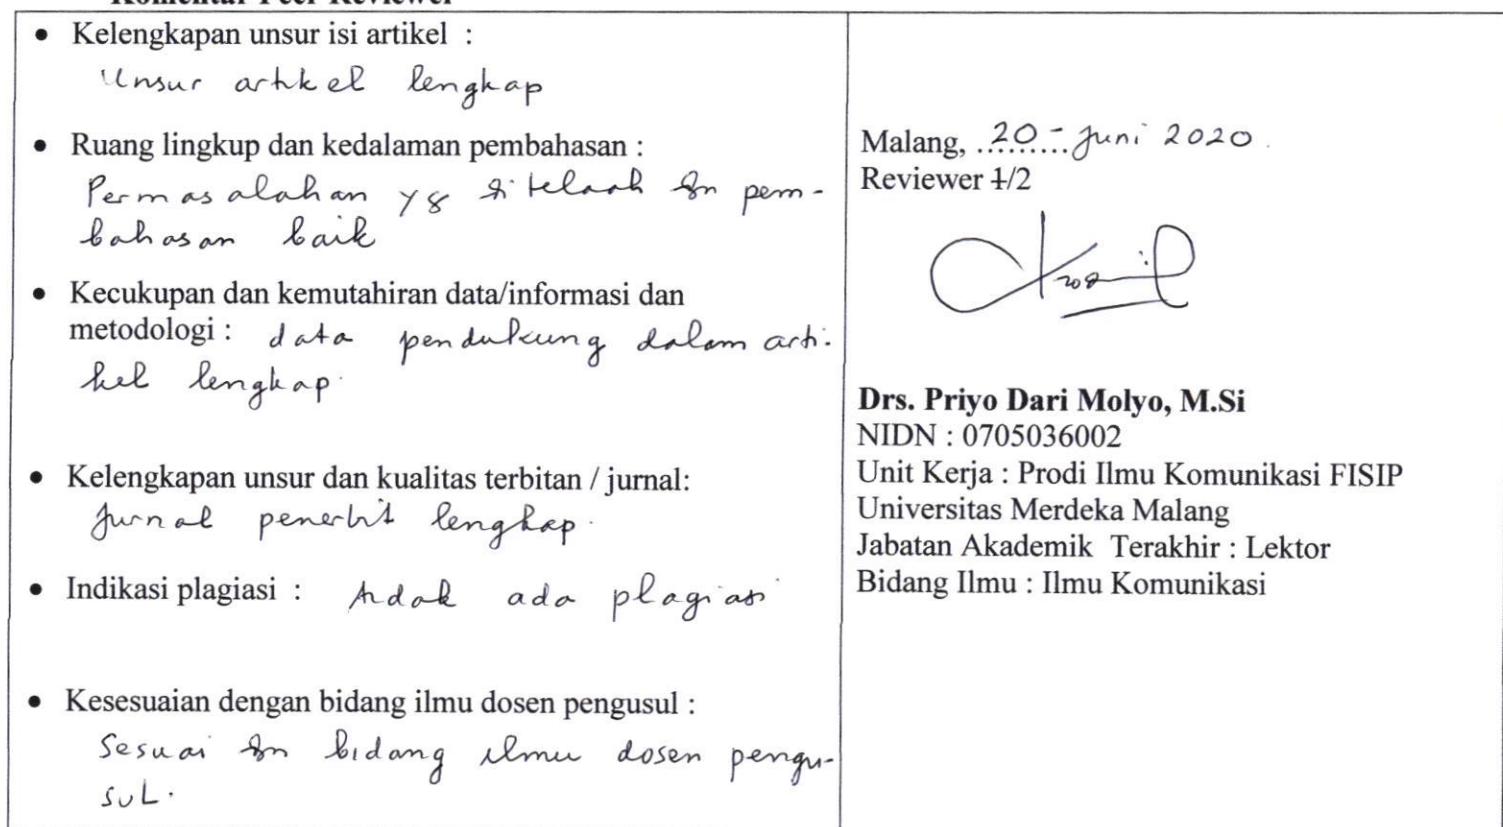 Komentar Peer Reviewer
• Kelengkapan unsur isi artikel :
Unsur artikel lengkap
• Ruang lingkup dan kedalaman pembahasan :
Permasalahan yg ditelaah dn pem-
bahasan baik
• Kecukupan dan kemutahiran data/informasi dan
metodologi : data pendukung dalam arti-
kel lengkap.
• Kelengkapan unsur dan kualitas terbitan / jurnal:
Jurnal penerbit lengkap.
• Indikasi plagiasi : tidak ada plagiasi
• Kesesuaian dengan bidang ilmu dosen pengusul :
Sesuai dn bidang ilmu dosen pengu-
sul.
Malang, 20 - Juni 2020.
Reviewer 1/2
Drs. Priyo Dari Molyo, M.Si
NIDN : 0705036002
Unit Kerja : Prodi Ilmu Komunikasi FISIP
Universitas Merdeka Malang
Jabatan Akademik Terakhir : Lektor
Bidang Ilmu : Ilmu Komunikasi